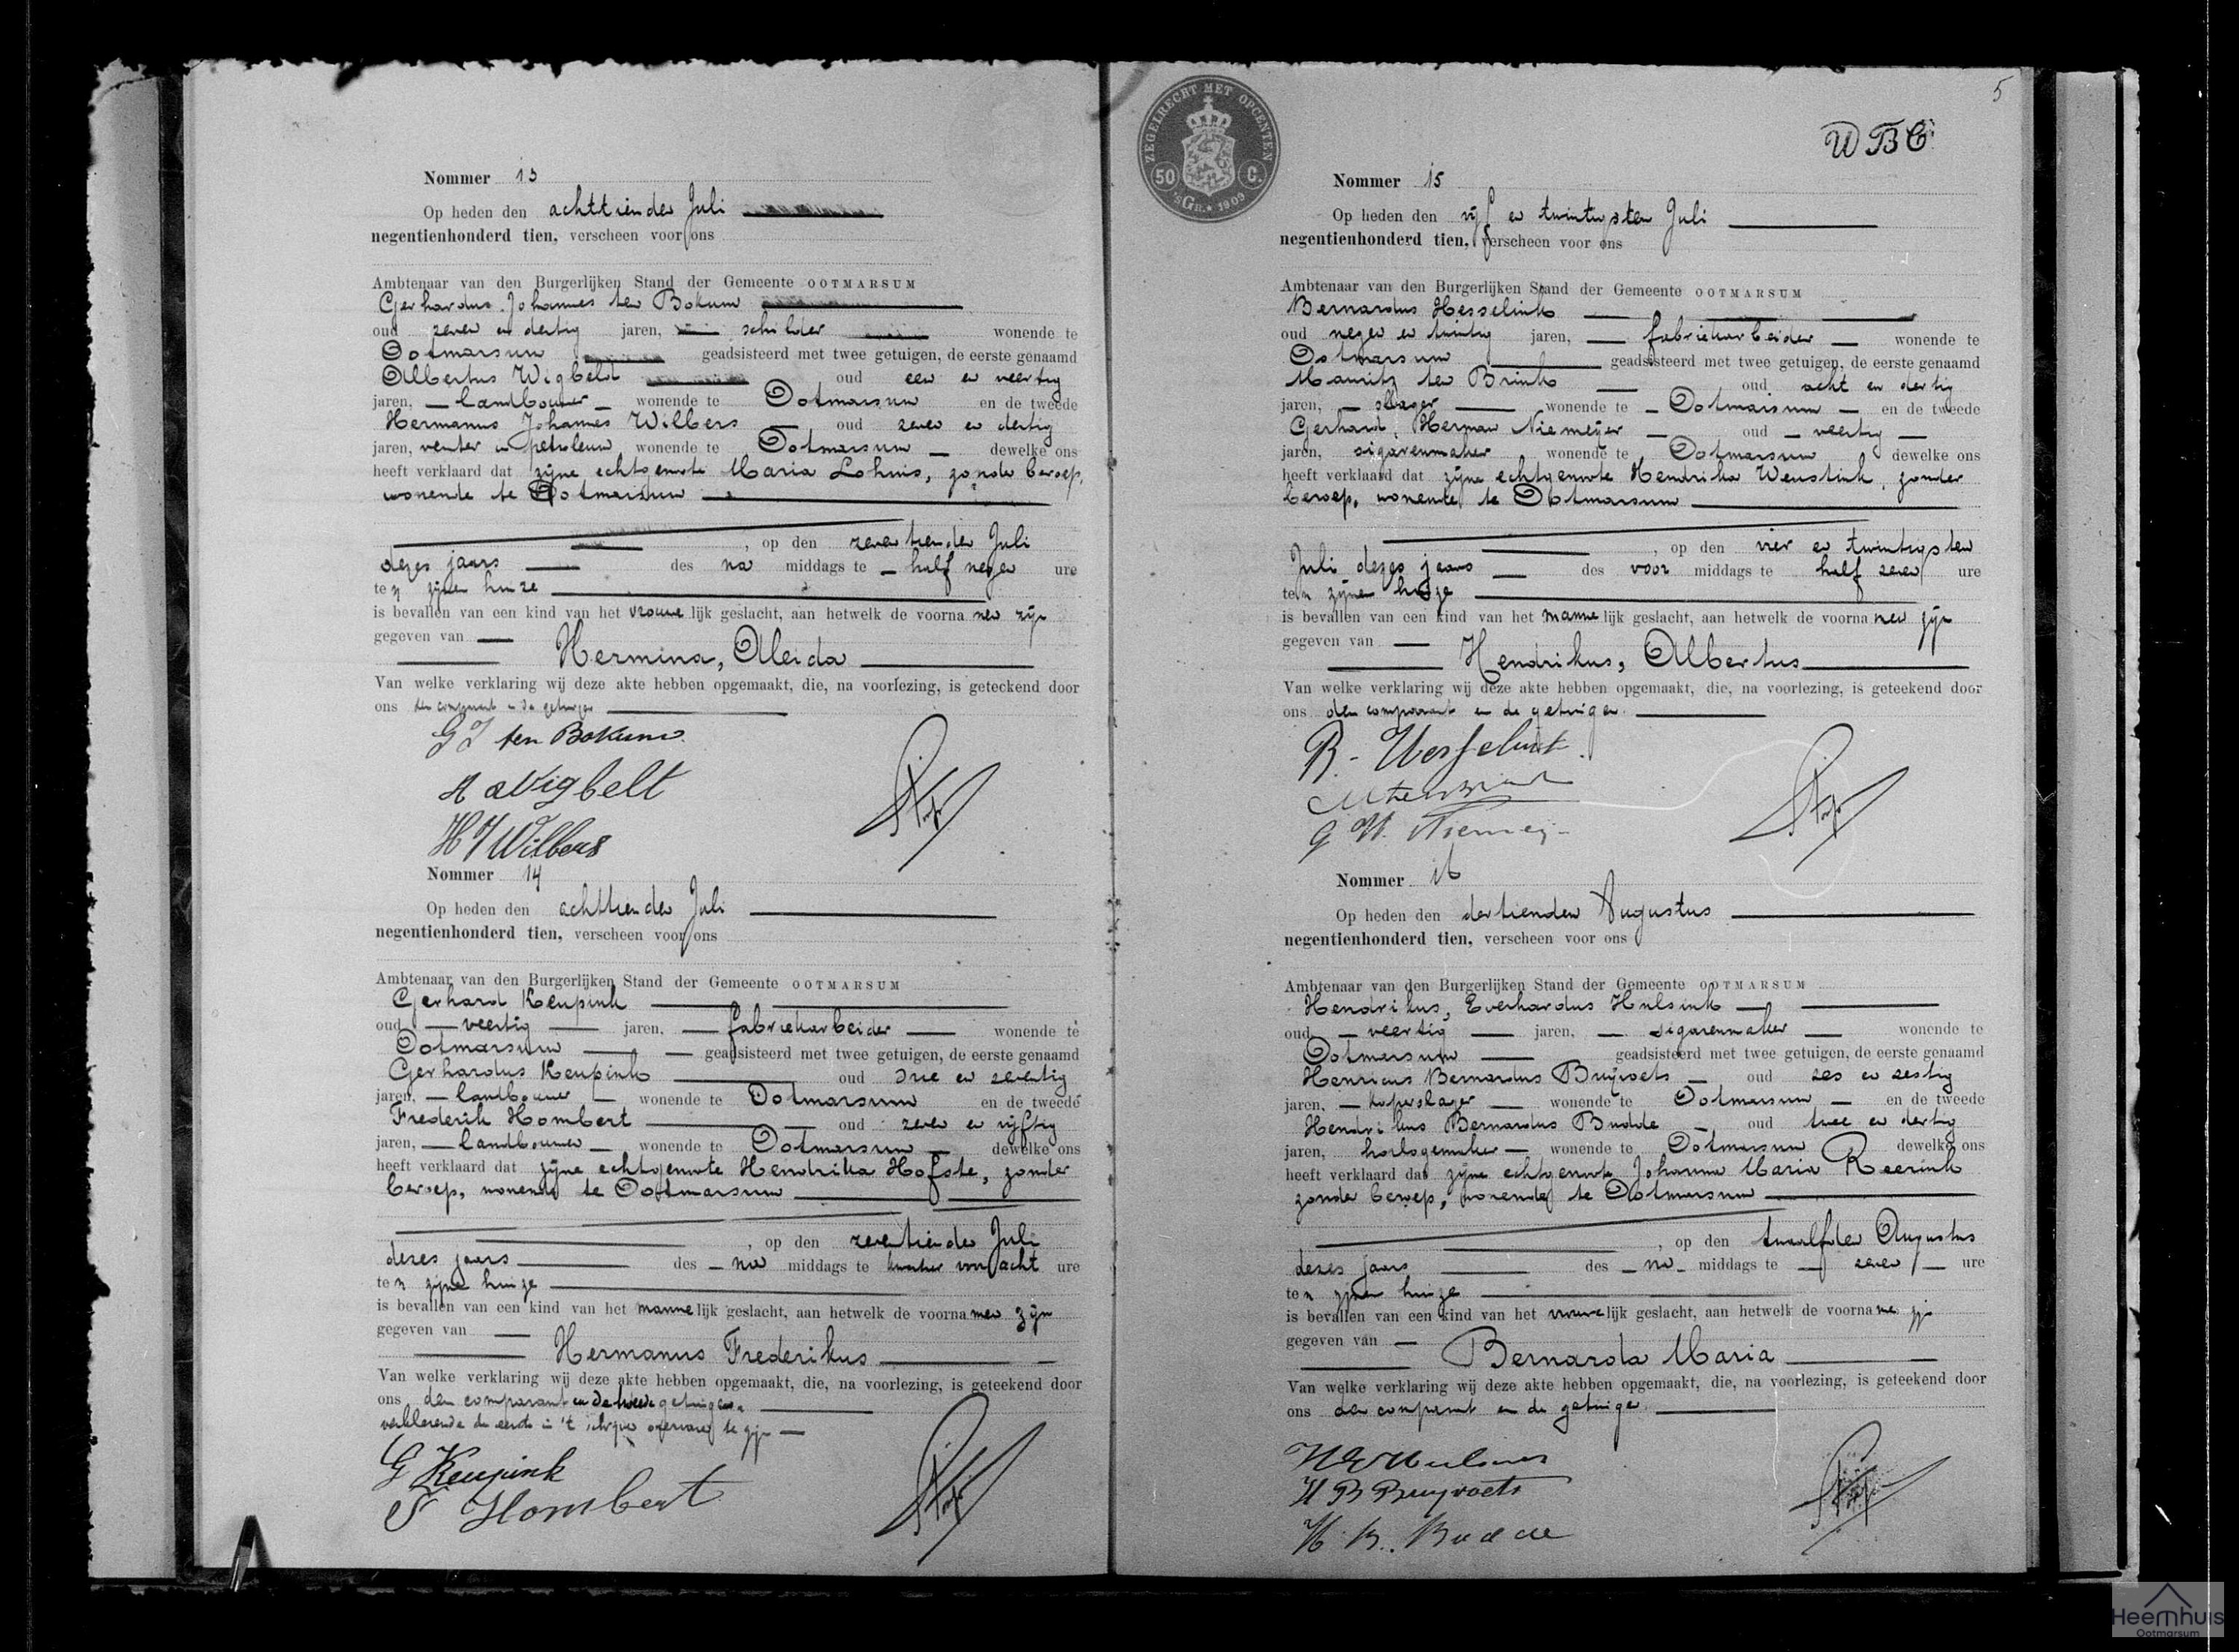 Nommer 13
Op heden den achttienden Juli
negentienhonderd tien, verscheen voor ons
Ambtenaar van den Burgerlijken Stand der Gemeente OOTMARSUM
Gerhardus Johannes ten Bokum
oud zeven en dertig jaren, schilder wonende te
Ootmarsum geadsisteerd met twee getuigen, de eerste genaamd
Albertus Wigbelt oud een en veertig
jaren, landbouwer wonende te Ootmarsum en de tweede
Hermanus Johannes Wilbers oud zeven en dertig
jaren, venter in petroleum wonende te Ootmarsum dewelke ons
heeft verklaard dat zijne echtgenoote Maria Lohuis, zonder beroep,
wonende te Ootmarsum
, op den zeventienden Juli
dezes jaars des na middags te half negen ure
ten zijnen huize
is bevallen van een kind van het vrouwelijk geslacht, aan hetwelk de voornamen zijn
gegeven van
Hermina, Aleida
Van welke verklaring wij deze akte hebben opgemaakt, die, na voorlezing, is geteekend door
ons den comparant en de getuigen
G J ten Bokum
A Wigbelt
H J Wilbers
Nommer 14
Op heden den achttienden Juli
negentienhonderd tien, verscheen voor ons
Ambtenaar van den Burgerlijken Stand der Gemeente OOTMARSUM
Gerhard Keupink
oud veertig jaren, fabriekarbeider wonende te
Ootmarsum geadsisteerd met twee getuigen, de eerste genaamd
Gerhardus Keupink oud drie en zeventig
jaren, landbouwer wonende te Ootmarsum en de tweede
Frederik Hombert oud zeven en vijftig
jaren, landbouwer wonende te Ootmarsum dewelke ons
heeft verklaard dat zijne echtgenoote Hendrika Hofste, zonder
beroep, wonende te Ootmarsum
, op den zeventienden Juli
dezes jaars des na middags te kwartier voor acht ure
ten zijnen huize
is bevallen van een kind van het mannelijk geslacht, aan hetwelk de voornamen zijn
gegeven van
Hermanus Frederikus
Van welke verklaring wij deze akte hebben opgemaakt, die, na voorlezing, is geteekend door
ons den comparant en de tweede getuige
verklarende de eerste in 't schrijven onervaren te zijn
G Keupink
F Hombert
ZEGELRECHT MET OPCENTEN
50 C.
'sGR. 1909
5
WBC
Nommer 15
Op heden den vijf en twintigsten Juli
negentienhonderd tien, verscheen voor ons
Ambtenaar van den Burgerlijken Stand der Gemeente OOTMARSUM
Bernardus Hesselink
oud negen en twintig jaren, fabriekarbeider wonende te
Ootmarsum geadsisteerd met twee getuigen, de eerste genaamd
Mauritz ten Brink oud acht en dertig
jaren, slager wonende te Ootmarsum en de tweede
Gerhard, Herman Niemeijer oud veertig
jaren, sigarenmaker wonende te Ootmarsum dewelke ons
heeft verklaard dat zijne echtgenoote Hendrika Wenstink, zonder
beroep, wonende te Ootmarsum
, op den vier en twintigsten
Juli dezes jaars des voor middags te half zeven ure
ten zijnen huize
is bevallen van een kind van het mannelijk geslacht, aan hetwelk de voornamen zijn
gegeven van
Hendrikus, Albertus
Van welke verklaring wij deze akte hebben opgemaakt, die, na voorlezing, is geteekend door
ons den comparant en de getuigen
B. Hesselink
M ten Brink
G H. Niemeij
Nommer 16
Op heden den dertienden Augustus
negentienhonderd tien, verscheen voor ons
Ambtenaar van den Burgerlijken Stand der Gemeente OOTMARSUM
Hendrikus, Everhardus Hulsink
oud veertig jaren, sigarenmaker wonende te
Ootmarsum geadsisteerd met twee getuigen, de eerste genaamd
Henricus Bernardus Bruijvoets oud zes en zestig
jaren, koperslager wonende te Ootmarsum en de tweede
Hendrikus Bernardus Budde oud twee en dertig
jaren, horlogemaker wonende te Ootmarsum dewelke ons
heeft verklaard dat zijne echtgenoote Johanna Maria Reerink
zonder beroep, wonende te Ootmarsum
, op den twaalfden Augustus
dezes jaars des na middags te zeven ure
ten zijnen huize
is bevallen van een kind van het vrouwelijk geslacht, aan hetwelk de voornamen zijn
gegeven van
Bernarda Maria
Van welke verklaring wij deze akte hebben opgemaakt, die, na voorlezing, is geteekend door
ons den comparant en de getuigen
H B Bruyvoets
H. B. Budde
Heemhuis
Ootmarsum